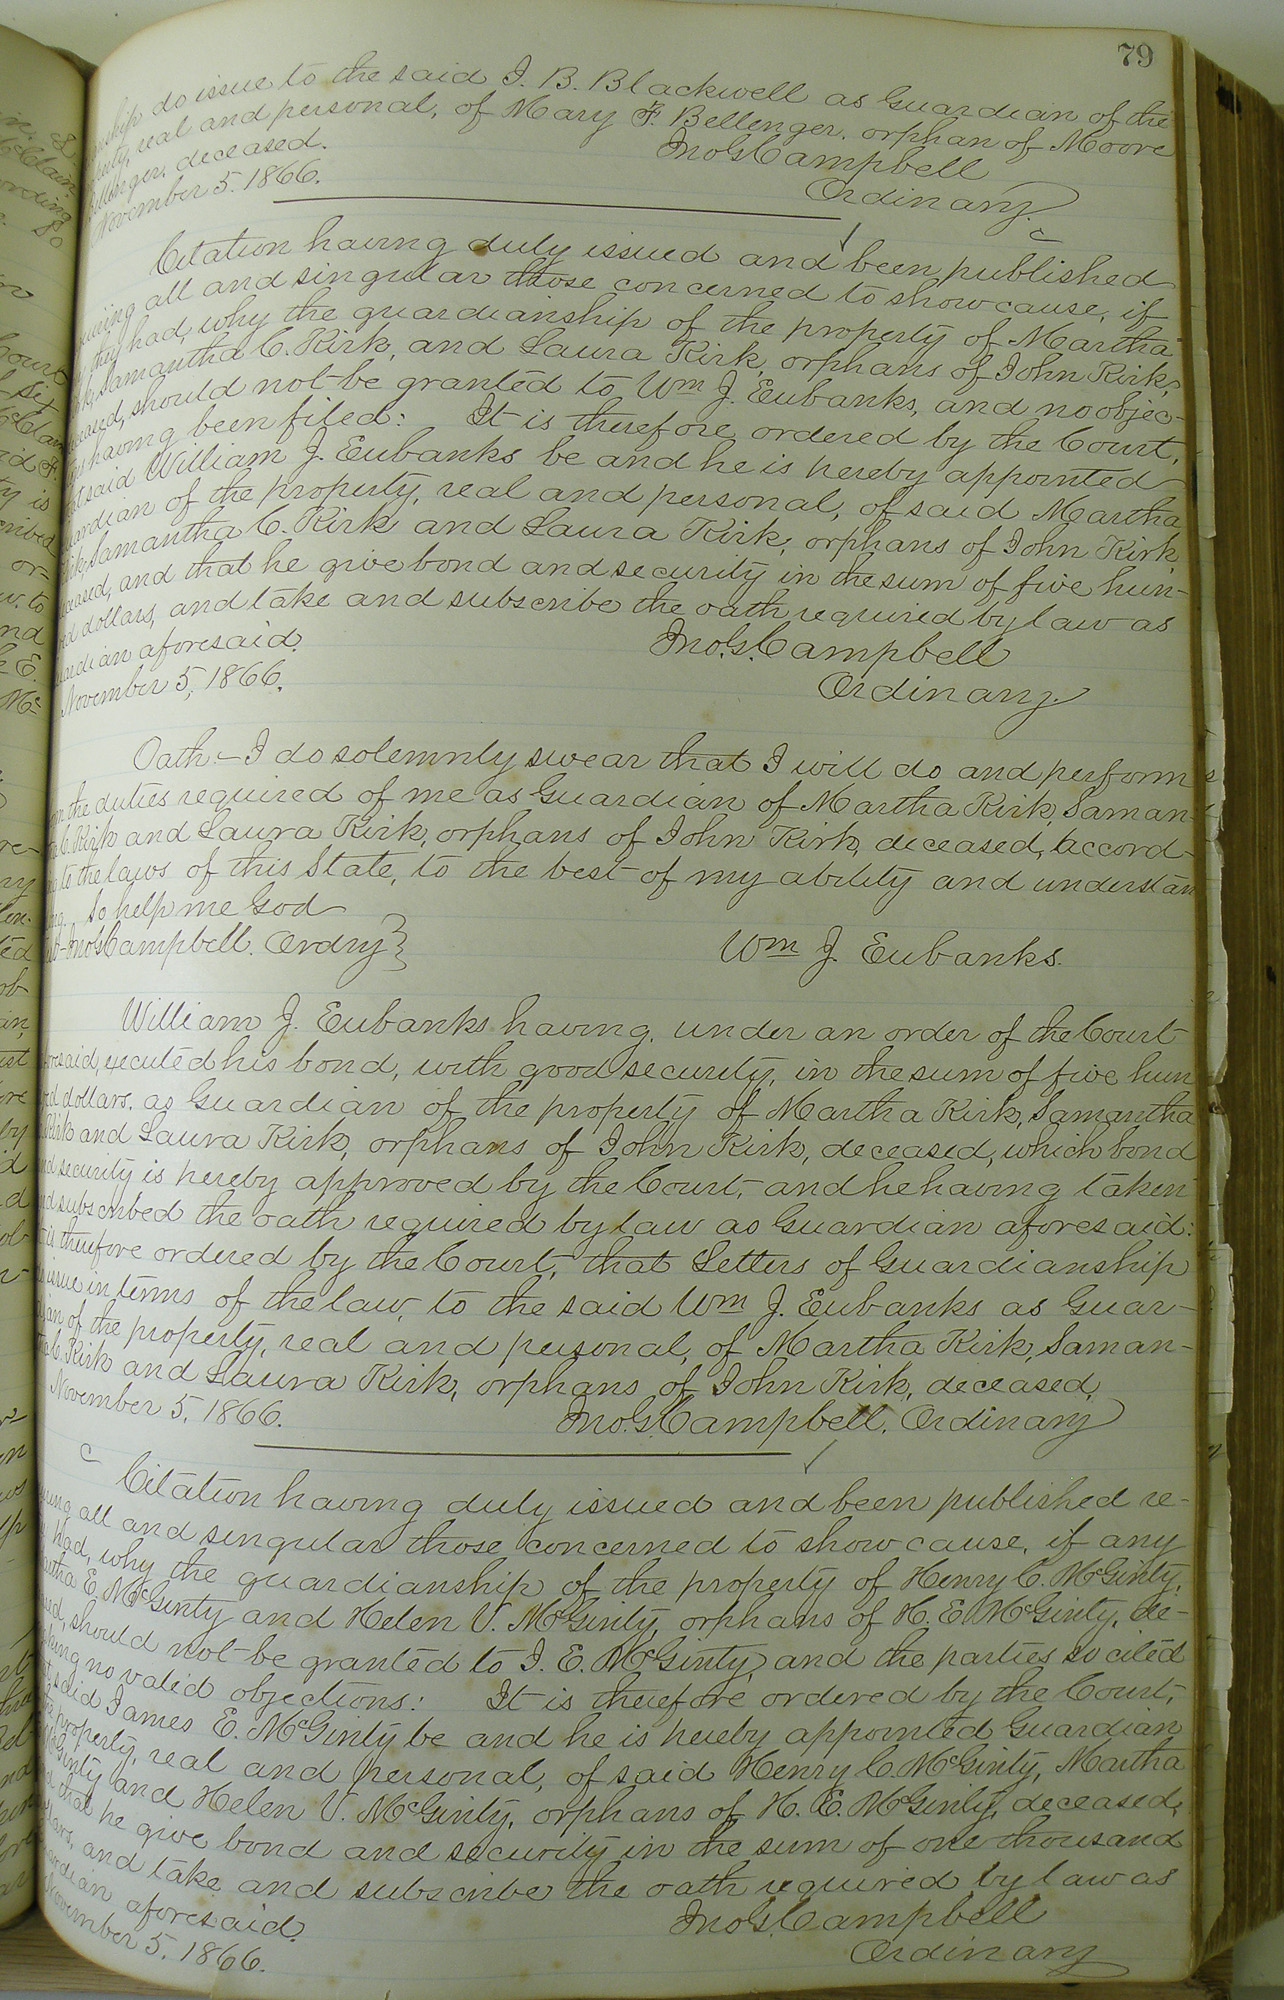 79
ship do issue to the said I. B. Blackwell as Guardian of the
perty, real and personal, of Mary F. Bellenger, orphan of Moore
Bellenger, deceased. Jno G. Campbell
November 5. 1866. Ordinary.
Citation having duly issued and been published
quiring all and singular those concerned to show cause, if
they had, why the guardianship of the property of Martha
Kirk, Samantha C. Kirk, and Laura Kirk, orphans of John Kirk,
deceased, should not be granted to Wm J. Eubanks, and no objec-
having been filed: It is therefore ordered by the Court,
said William J. Eubanks be and he is hereby appointed
uardian of the property, real and personal, of said Martha
Kirk, Samantha C. Kirk and Laura Kirk, orphans of John Kirk,
deceased, and that he give bond and security in the sum of five hun-
red dollars, and take and subscribe the oath required by law as
uardian aforesaid. Jno. G. Campbell
November 5, 1866. Ordinary.
Oath:- I do solemnly swear that I will do and perform
the duties required of me as Guardian of Martha Kirk, Saman-
C. Kirk and Laura Kirk, orphans of John Kirk, deceased, accord-
to the laws of this State, to the best of my ability and understan
So help me God
Jno G. Campbell. Ordry } Wm J. Eubanks.
William J. Eubanks having, under an order of the Court
oresaid, executed his bond, with good security, in the sum of five hun
red dollars, as Guardian of the property of Martha Kirk, Samantha
Kirk and Laura Kirk, orphans of John Kirk, deceased, which bond
nd security is hereby approved by the Court, and he having taken
nd subscribed the oath required by law as Guardian aforesaid:
is therefore ordered by the Court, that Letters of Guardianship
issue in terms of the law, to the said Wm J. Eubanks as Guar-
ian of the property, real and personal, of Martha Kirk, Saman-
C. Kirk and Laura Kirk, orphans of John Kirk, deceased.
November 5, 1866. Jno. G. Campbell. Ordinary
Citation having duly issued and been published re-
all and singular those concerned to show cause, if any
had, why the guardianship of the property of Henry C. McGinty,
artha E. McGinty and Helen V. McGinty, orphans of H. E. McGinty, de-
should not be granted to J. E. McGinty, and the parties so cited
no valid objections: It is therefore ordered by the Court,
said James E. McGinty be and he is hereby appointed Guardian
property, real and personal, of said Henry C. McGinty, Martha
McGinty and Helen V. McGinty, orphans of H. E. McGinty, deceased,
that he give bond and security in the sum of one thousand
and take and subscribe the oath required by law as
ardian aforesaid. Jno G. Campbell
November 5. 1866. Ordinary